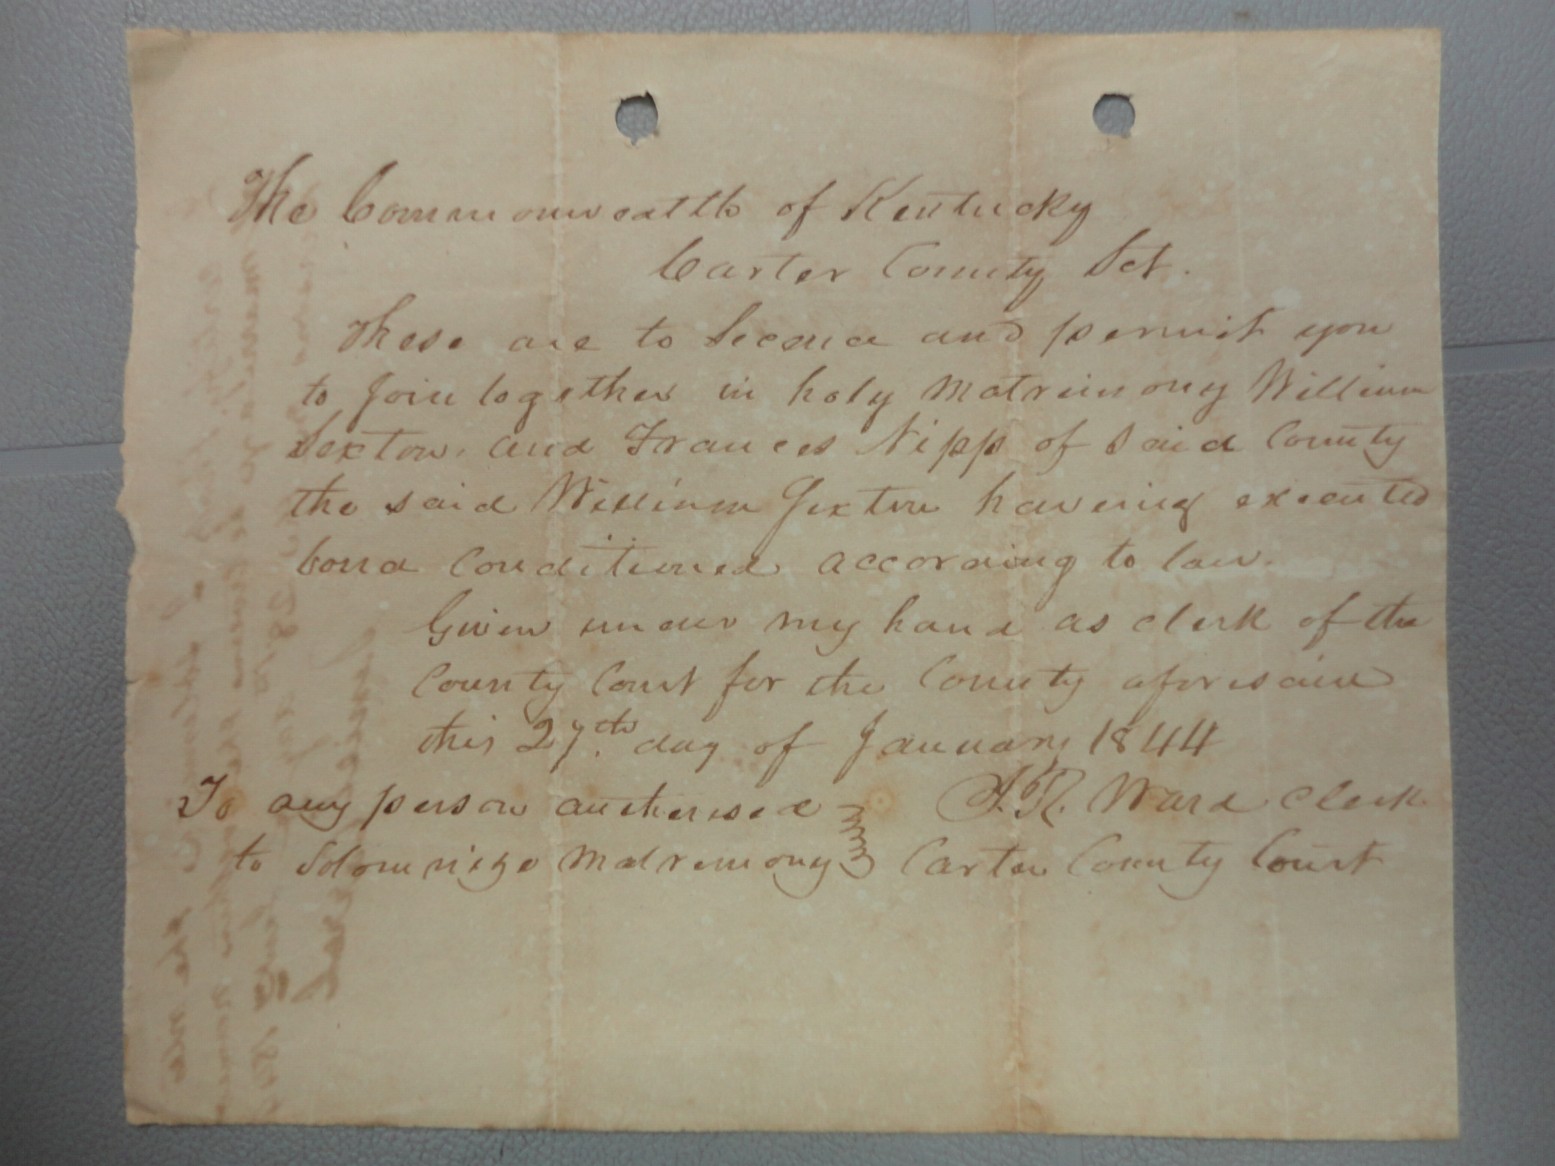 The Commonwealth of Kentucky
Carter County Sct.
These are to licence and permit you
to join together in holy matrimony William
Sexton and Frances Nipp of said County
the said William Sexton haveing executed
bond conditioned according to law.
Given under my hand as clerk of the
County Court for the County aforesaid
this 27th day of January 1844
To any person autherised
to Solomnize Matremony
Ward Clerk
Carter County Court